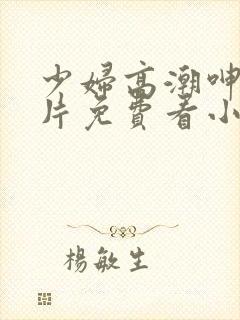 少婦高潮呻
片免費看小
楊敏生